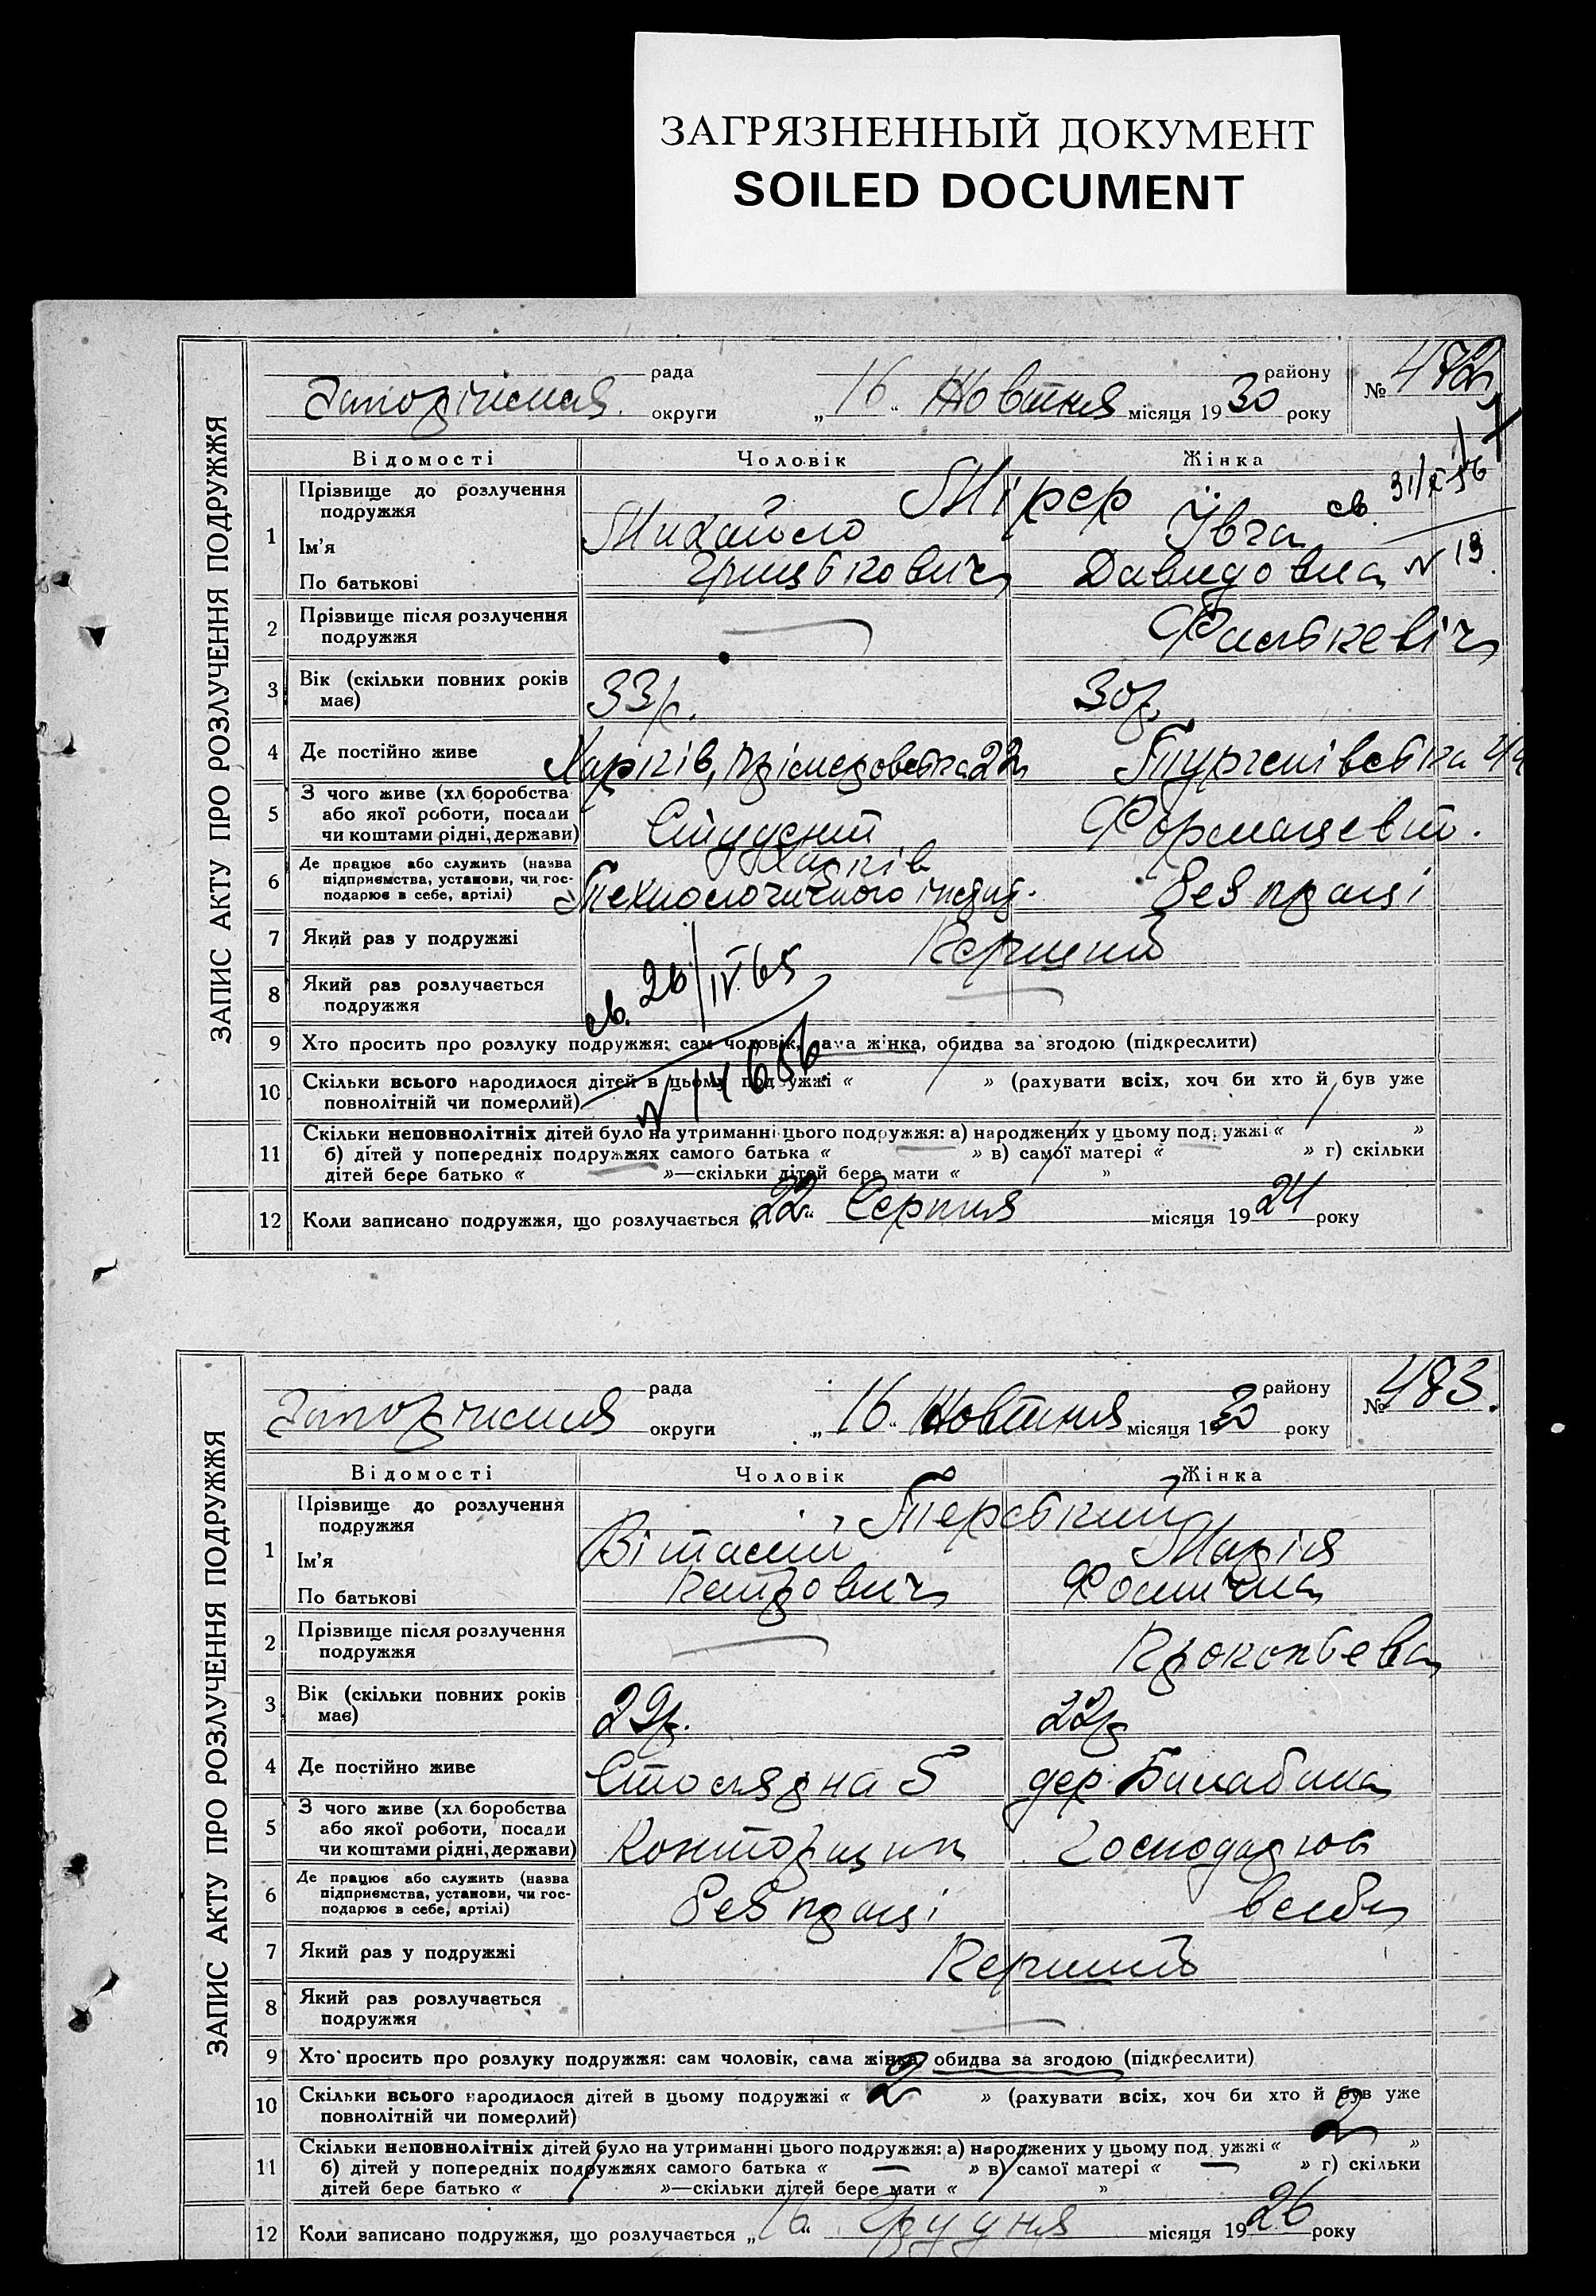 ЗАГРЯЗНЕННЫЙ ДОКУМЕНТ
SOILED DOCUMENT
ЗАПИС АКТУ ПРО РОЗЛУЧЕННЯ ПОДРУЖЖЯ
рада
району
округи „16“ Жовтня місяця 1930 року
№ 472
Відомості Чоловік Жінка
1 Прізвище до розлучення подружжя
Мірер
св. 31/X 56
Ім’я Михайло Івга
По батькові Давидовна N 13.
2 Прізвище після розлучення подружжя — Фалькевіч
3 Вік (скільки повних років має) 33 р. 30 р.
4 Де постійно живе Харків,
5 З чого живе (хл боробства або якої роботи, посади чи коштами рідні, держави) Студент Формацевт.
6 Де працює або служить (назва підприємства, установи, чи господарює в себе, артілі) Харків Технологичного інстит. без праці
7 Який раз у подружжі Перший
8 Який раз розлучається подружжя —
св. 26/IV 65
N 14656.
9 Хто просить про розлуку подружжя: сам чоловік, сама жінка, обидва за згодою (підкреслити)
10 Скільки всього народилося дітей в цьому подружжі « / » (рахувати всіх, хоч би хто й був уже
повнолітній чи померлий)
11 Скільки неповнолітніх дітей було на утриманні цього подружжя: а) народжених у цьому подружжі « »
б) дітей у попередніх подружжях самого батька « » в) самої матері « » г) скільки
дітей бере батько « »—скільки дітей бере мати « »
12 Коли записано подружжя, що розлучається „22“ Серпня місяця 1924 року
ЗАПИС АКТУ ПРО РОЗЛУЧЕННЯ ПОДРУЖЖЯ
рада
району
округи „16“ Жовтня місяця 1930 року
№ 483.
Відомості Чоловік Жінка
1 Прізвище до розлучення подружжя
Терський
Ім’я Віталій Марія
По батькові Петрович Фомична
2 Прізвище після розлучення подружжя — Прокопьева
3 Вік (скільки повних років має) 29 р. 22 р
4 Де постійно живе Столярна 5 дер. Балабина
5 З чого живе (хл боробства або якої роботи, посади чи коштами рідні, держави) Конторщик Господарюв
6 Де працює або служить (назва підприємства, установи, чи господарює в себе, артілі) без праці в себя
7 Який раз у подружжі Перший
8 Який раз розлучається подружжя —
9 Хто просить про розлуку подружжя: сам чоловік, сама жінка, обидва за згодою (підкреслити)
10 Скільки всього народилося дітей в цьому подружжі « 2 » (рахувати всіх, хоч би хто й був уже
повнолітній чи померлий)
11 Скільки неповнолітніх дітей було на утриманні цього подружжя: а) народжених у цьому подружжі « 2 »
б) дітей у попередніх подружжях самого батька « — » в) самої матері « — » г) скільки
дітей бере батько « / »—скільки дітей бере мати « / »
12 Коли записано подружжя, що розлучається „16“ Грудня місяця 1926 року